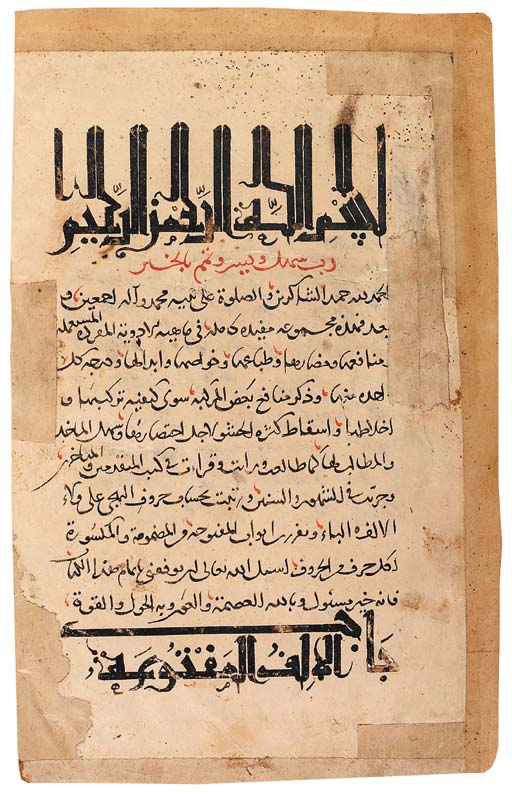 بسم الله الرحمن الرحيم
رب سهل ويسر وتمم بالخير
الحمد لله حمد الشاكرين والصلوة على نبيه محمد وآله اجمعين و
بعد فهذه مجموعه مفيده كامله في ماهية الادوية المفرده المستعمله
منافعها ومضارها وطباعها وخواصها وابدالها ودرجة كل
احده منها وذكر منافع بعض المركبة سوى كيفية تركيبها و
اخلاطها واسقاط كثرة الحشو لاجل اختصارها وسهل الماخذ
والمطالب لها كما طالعت ورايت وقرات في كتب المتقدمين والمتاخرين
وجربت في الشهور والسنين ورتبت بحساب حروف التهجي على ولاء
الالف والباء وتقرر ابواب المفتوحة والمضمومة والمكسورة
لكل حرف من الحروف اسل الله تعالى ان يوفقني باتمام هذا الكتاب
فانه خير مسئول وبالله العصمة والعون وبه الحول والقوة
باب الالف المفتوحة